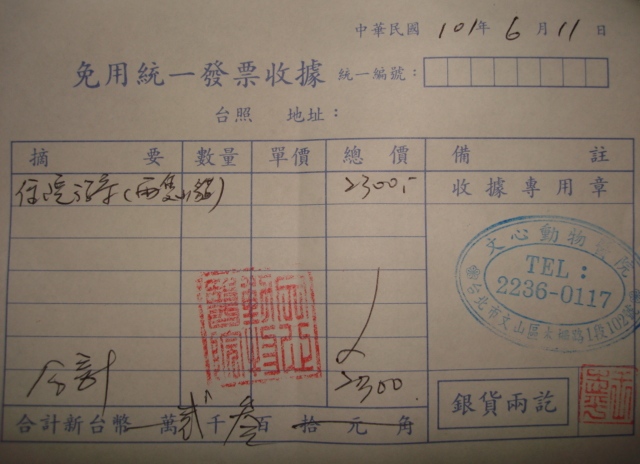 中華民國 101年 6月 11日
免用統一發票收據 統一編號：
台照 地址：
摘要 數量 單價 總價 備註
住院治療(兩隻貓) 2300.- 收據專用章
文心動物醫院
TEL：
2236-0117
合計 2300.
銀貨兩訖
合計新台幣 萬 貳 千 叁 百 拾 元 角